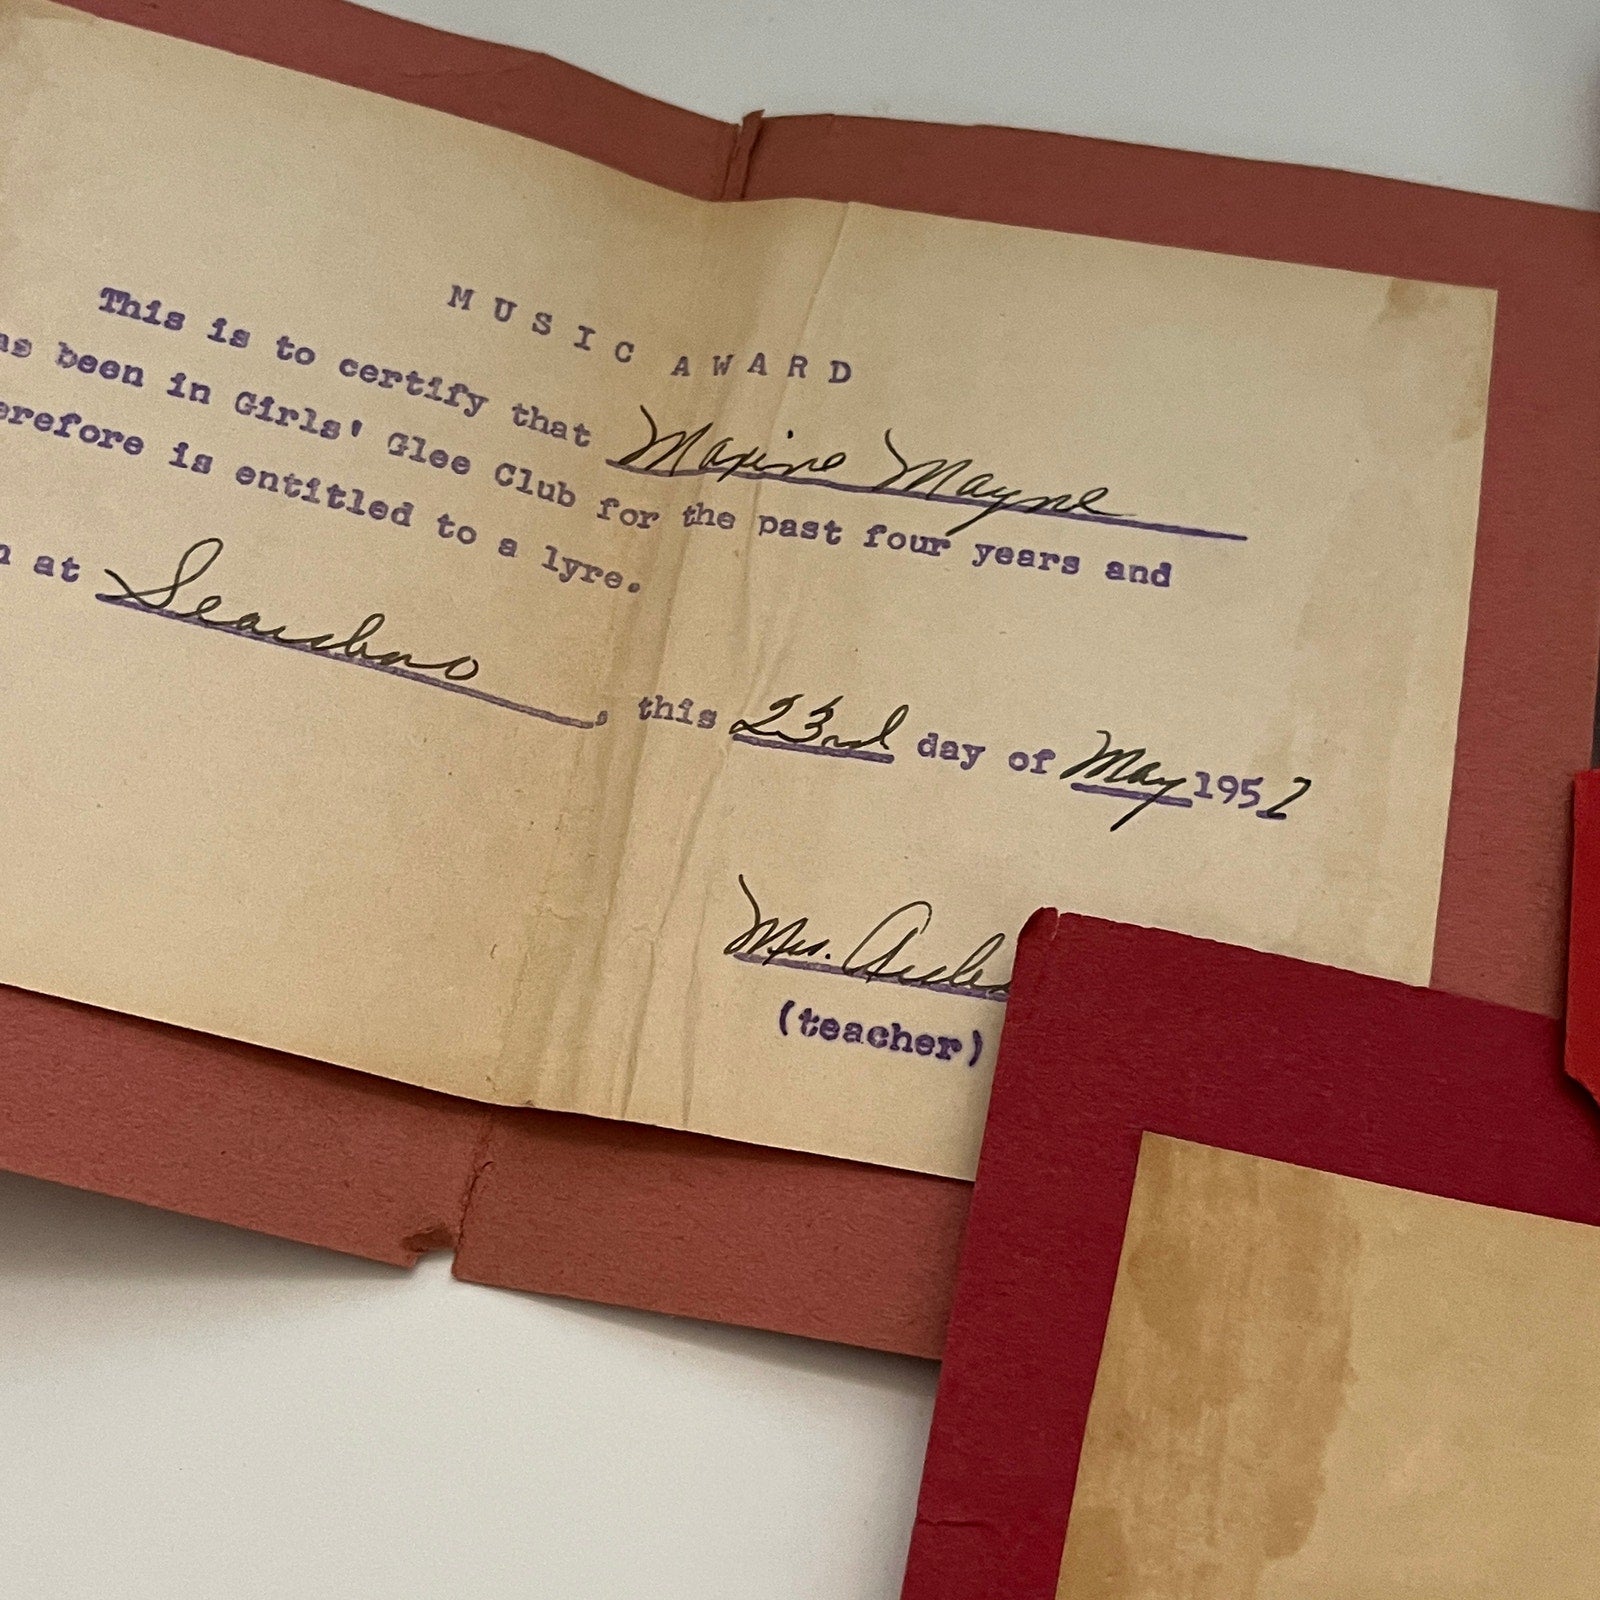 MUSIC AWARD
This is to certify that Maxine Mayne
as been in Girls' Glee Club for the past four years and
erefore is entitled to a lyre.
n at Scarsboro, this 23rd day of May 1952
Mrs.
(teacher)